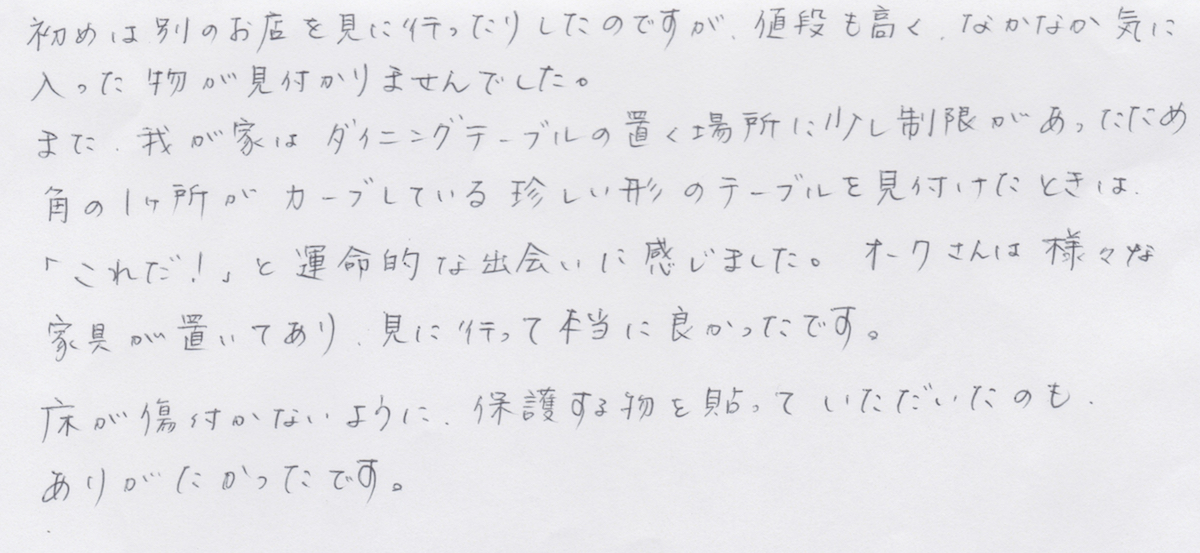 初めは別のお店を見に行ったりしたのですが、値段も高く、なかなか気に
入った物が見付かりませんでした。
また、我が家はダイニングテーブルの置く場所に少し制限があったため
角の1ヶ所がカーブしている珍しい形のテーブルを見付けたときは、
「これだ!」と運命的な出会いに感じました。オークさんは様々な
家具が置いてあり、見に行って本当に良かったです。
床が傷付かないように、保護する物を貼っていただいたのも、
ありがたかったです。